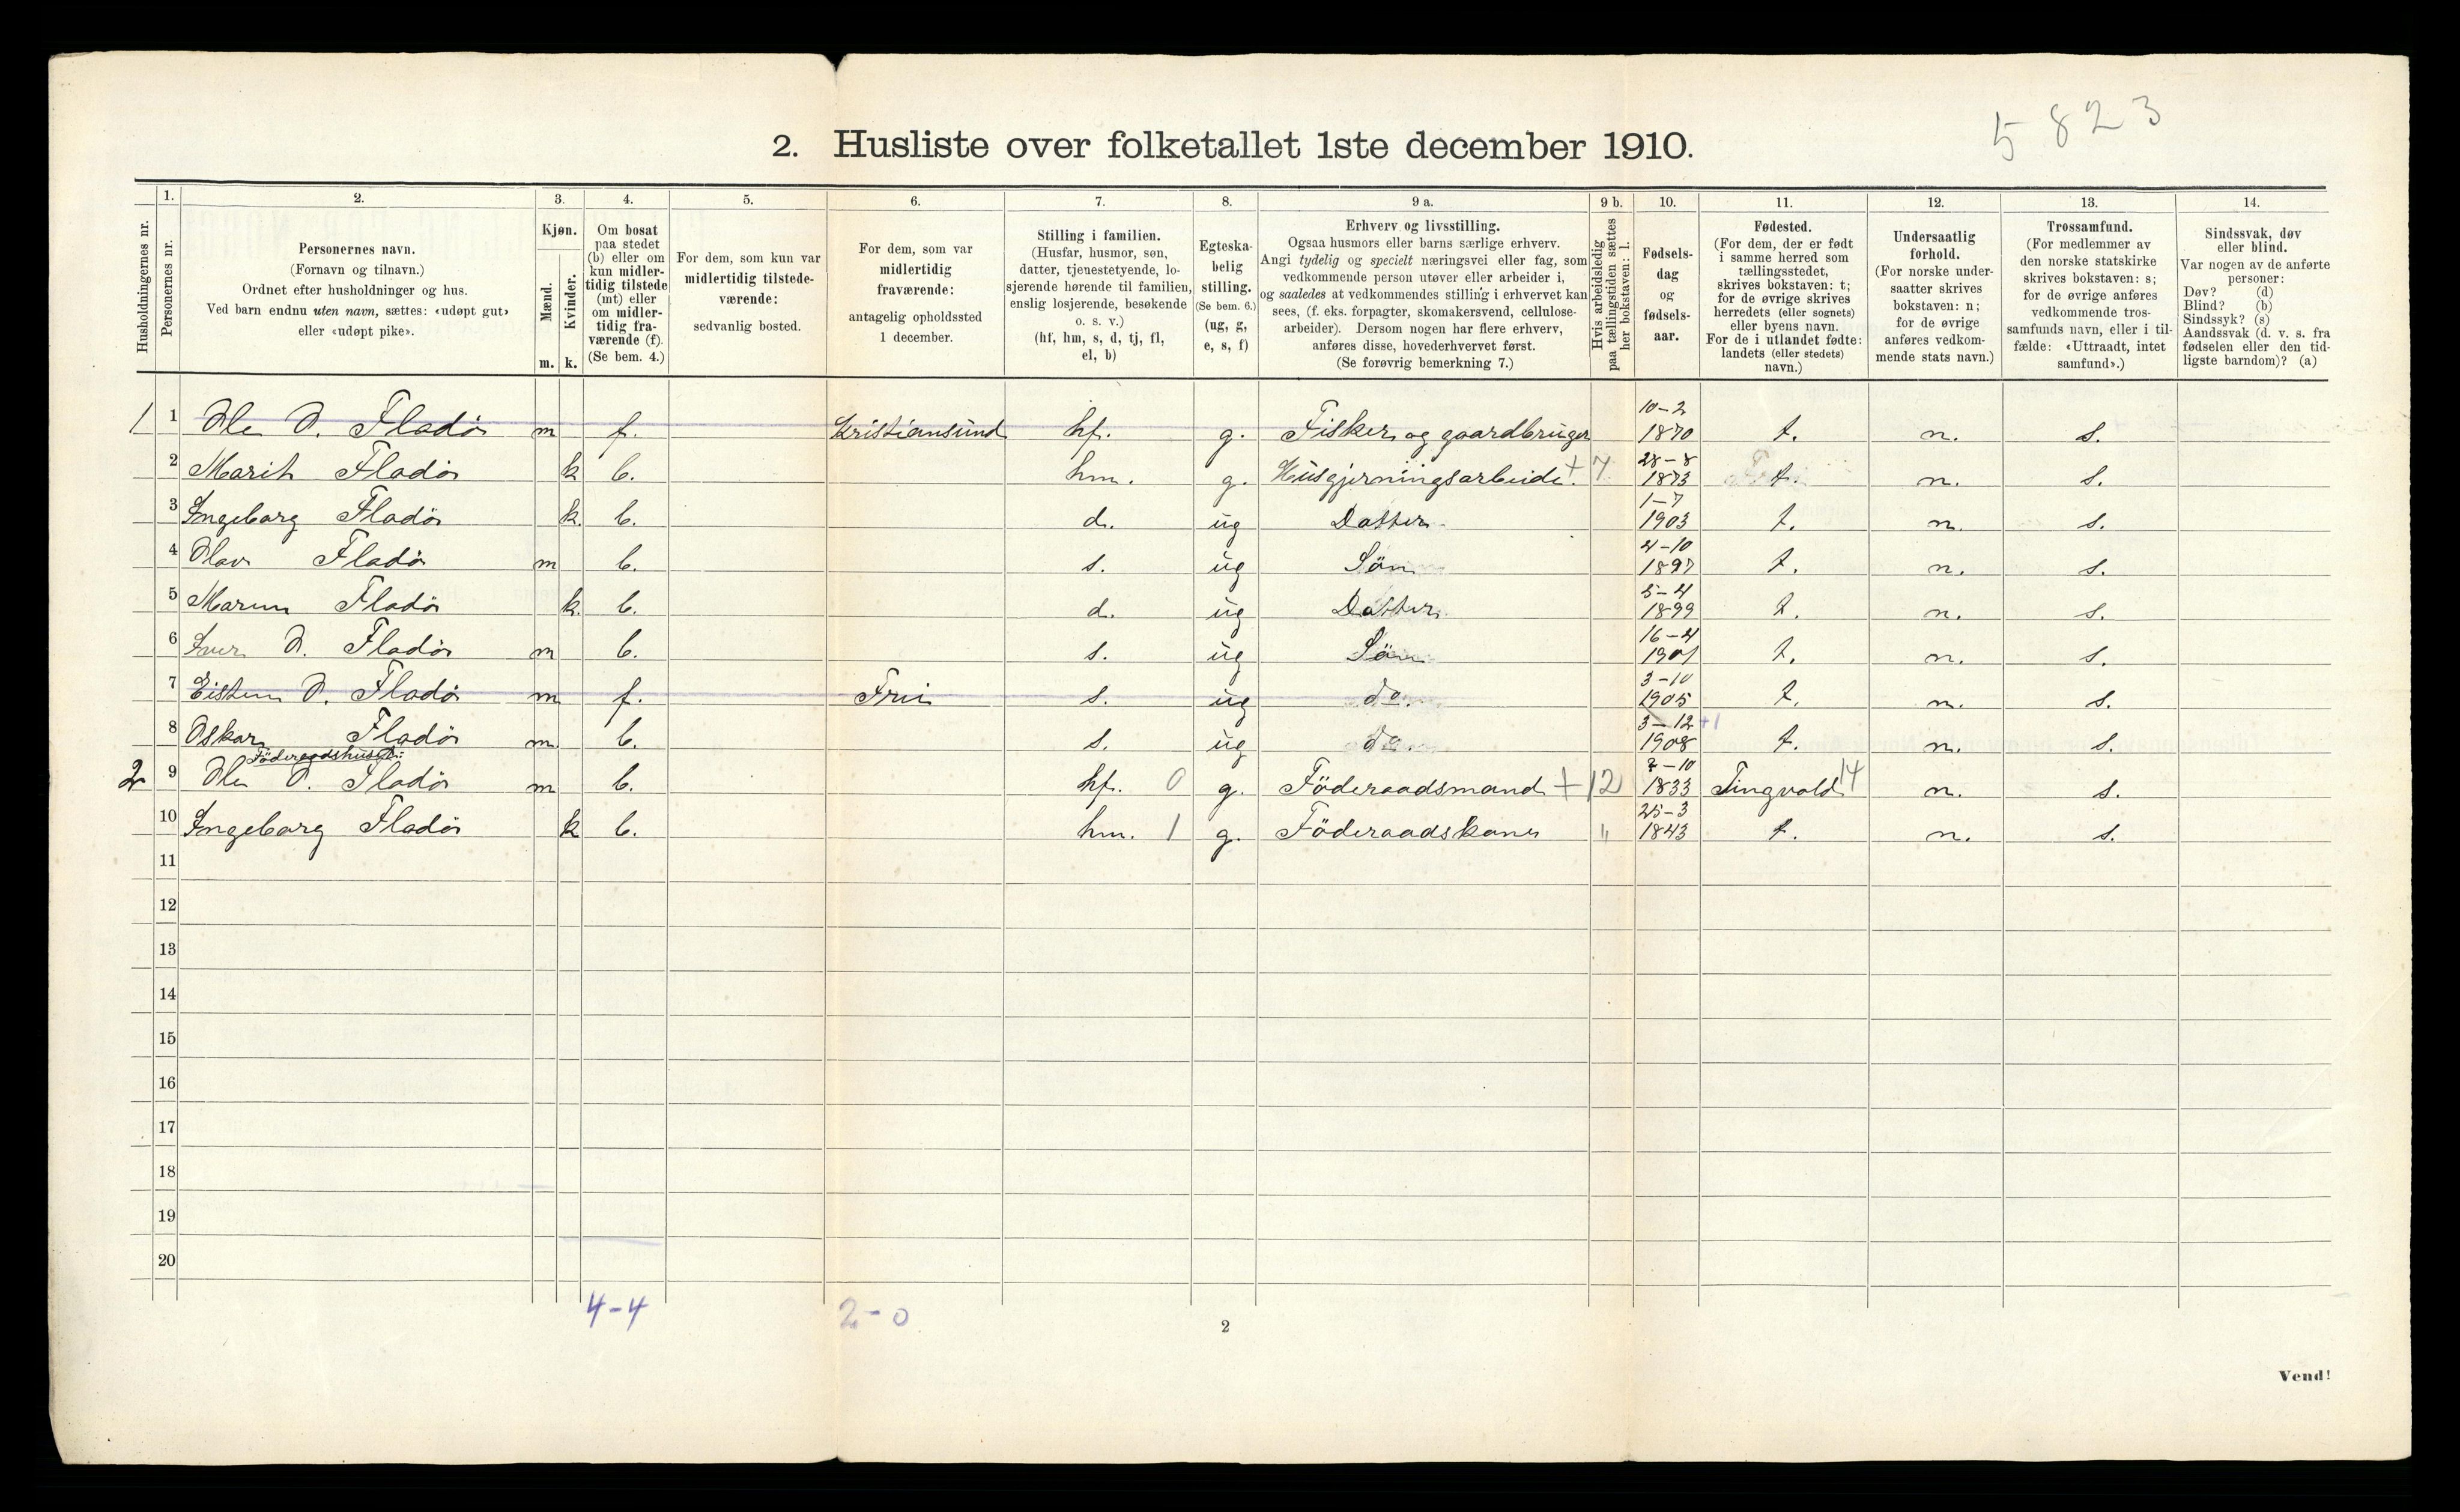 5823
2. Husliste over folketallet 1ste december 1910.
Husholdningernes nr.
1. Personernes nr.
2. Personernes navn.
(Fornavn og tilnavn.)
Ordnet efter husholdninger og hus.
Ved barn endnu uten navn, sættes: «udøpt gut»
eller «udøpt pike».
3. Kjøn.
Mænd. m.
Kvinder. k.
4. Om bosat
paa stedet
(b) eller om
kun midler-
tidig tilstede
(mt) eller
om midler-
tidig fra-
værende (f).
(Se bem. 4.)
5. For dem, som kun var
midlertidig tilstede-
værende:
sedvanlig bosted.
6. For dem, som var
midlertidig
fraværende:
antagelig opholdssted
1 december.
7. Stilling i familien.
(Husfar, husmor, søn,
datter, tjenestetyende, lo-
sjerende hørende til familien,
enslig losjerende, besøkende
o. s. v.)
(hf, hm, s, d, tj, fl,
el, b)
8. Egteska-
belig
stilling.
(Se bem. 6.)
(ug, g,
e, s, f)
9 a. Erhverv og livsstilling.
Ogsaa husmors eller barns særlige erhverv.
Angi tydelig og specielt næringsvei eller fag, som
vedkommende person utøver eller arbeider i,
og saaledes at vedkommendes stilling i erhvervet kan
sees, (f. eks. forpagter, skomakersvend, cellulose-
arbeider). Dersom nogen har flere erhverv,
anføres disse, hovederhvervet først.
(Se forøvrig bemerkning 7.)
9 b. Hvis arbeidsledig
paa tællingstiden sættes
her bokstaven: l.
10. Fødsels-
dag
og
fødsels-
aar.
11. Fødested.
(For dem, der er født
i samme herred som
tællingsstedet,
skrives bokstaven: t;
for de øvrige skrives
herredets (eller sognets)
eller byens navn.
For de i utlandet fødte:
landets (eller stedets)
navn.)
12. Undersaatlig
forhold.
(For norske under-
saatter skrives
bokstaven: n;
for de øvrige
anføres vedkom-
mende stats navn.)
13. Trossamfund.
(For medlemmer av
den norske statskirke
skrives bokstaven: s;
for de øvrige anføres
vedkommende tros-
samfunds navn, eller i til-
fælde: «Uttraadt, intet
samfund».)
14. Sindssvak, døv
eller blind.
Var nogen av de anførte
personer:
Døv? (d)
Blind? (b)
Sindssyk? (s)
Aandssvak (d. v. s. fra
fødselen eller den tid-
ligste barndom)? (a)
1 1 Ole O. Fladø m f. Kristiansund hf. g. Fisker og gaardbruger 10-2 1870 t. n. s.
2 Marit Fladö k b. hm. g. Husgjerningsarbeide. + 7 28-8 1873 t. n. s.
3 Ingeborg Fladö k. b. d. ug Datter 1-7 1903 t. n. s.
4 Olav Fladö m b. s. ug Sön 4-10 1897 t. n. s.
5 Maren Fladö k. b. d. ug Datter 5-4 1899 t. n. s.
6 Iver O. Fladö m b. s. ug Sön 16-4 1901 t. n. s.
7 Eisten O. Fladö m f. Frei s. ug do. 3-10 1905 t. n. s.
8 Oskar Fladö m. b. s. ug do. 3-12 +1 1908 t. n. s.
Föderaadshuset:
2 9 Ole O. Fladö m b. hf. 0 g. Föderaadsmand + 12 -10 1833 Tingvold 14 n. s.
10 Ingeborg Fladö k b. hm. 1 g. Föderaadskone " 25-3 1843 t. n. s.
11
12
13
14
15
16
17
18
19
20
4-4 2-0
2
Vend!